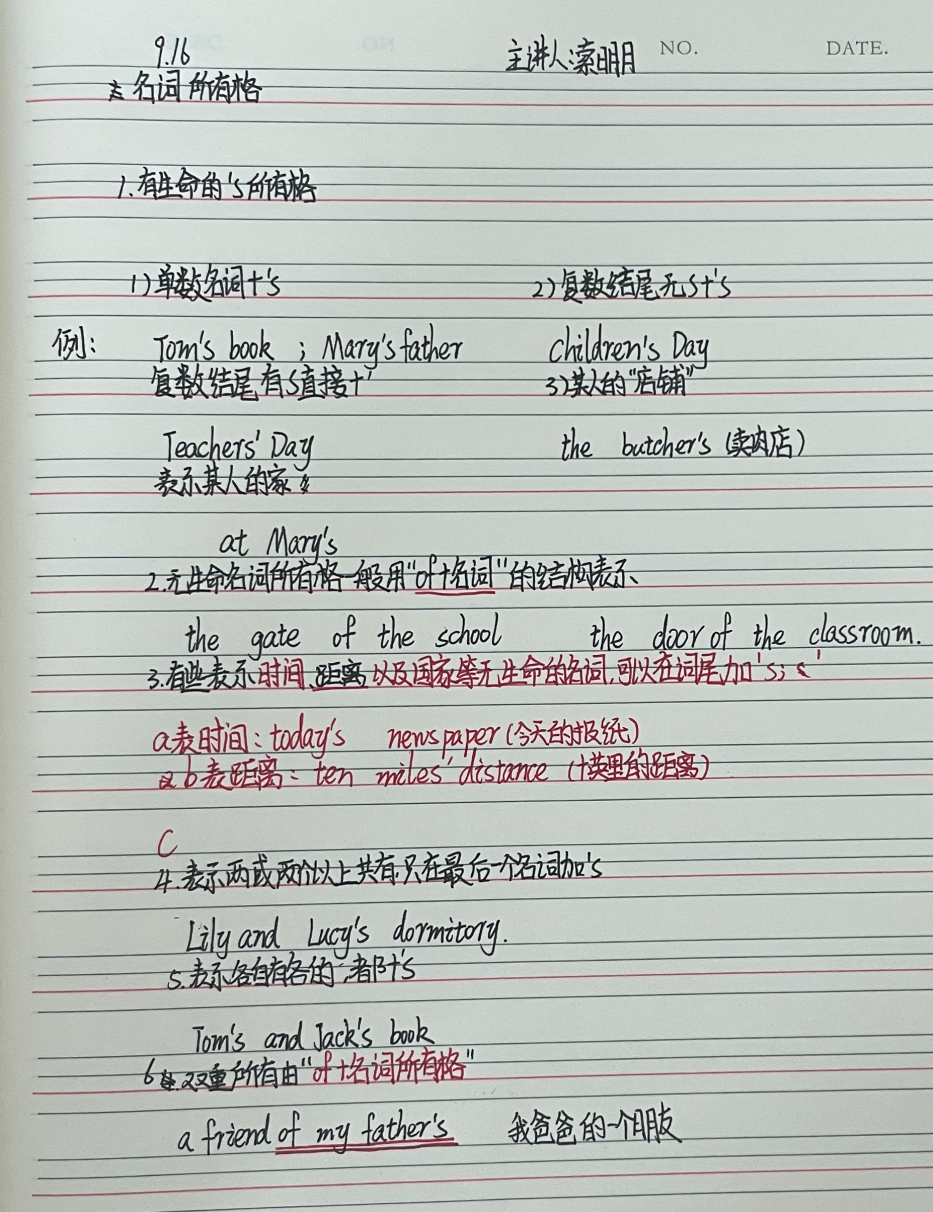 9.16 主讲人:索明月 NO. DATE.
名词所有格
1.有生命的's所有格
1)单数名词+'s 2)复数结尾无s+'s
例: Tom's book ; Mary's father Children's Day
复数结尾有s直接+' 3)某人的“店铺”
Teachers' Day the butcher's (卖肉店)
表示某人的家
at Mary's
2.无生命名词所有格一般用“of+名词”的结构表示
the gate of the school the door of the classroom.
3.有些表示时间,距离以及国家等无生命的名词,可以在词尾加's; '
a表时间: today's newspaper (今天的报纸)
b表距离: ten miles' distance (十英里的距离)
C
4.表示两或两个以上共有,只在最后一个名词加's
Lily and Lucy's dormitory.
5.表示各自有各的,都+'s
Tom's and Jack's book
6.双重所有由“of+名词所有格”
a friend of my father's 我爸爸的一个朋友